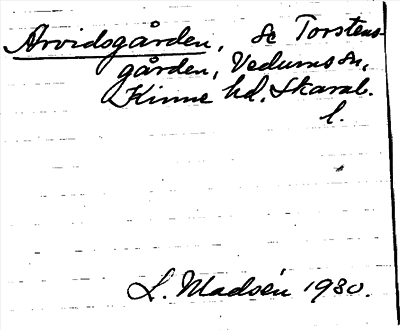 Arvidsgården, se Torstens-
gården, Vedums sn,
Kinne hd, Skarab.
l.
L. Madsén 1930.